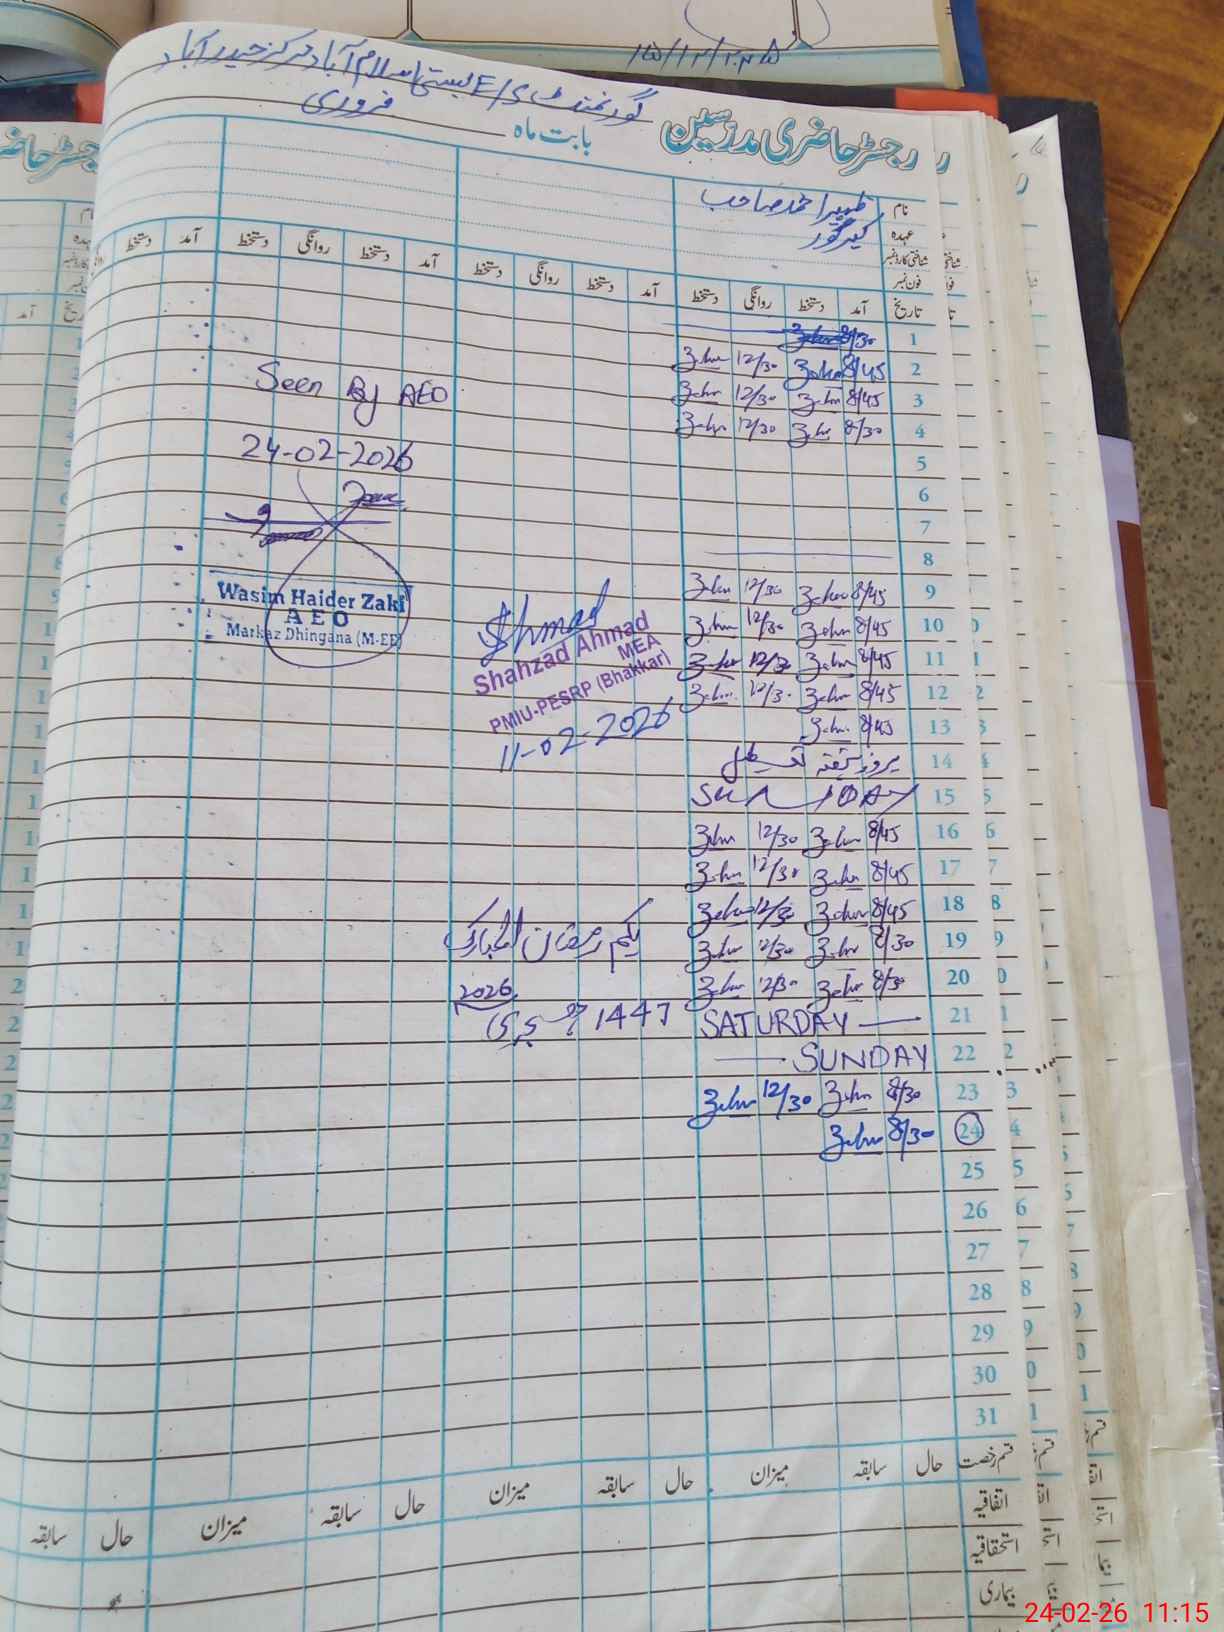 15/12/2025
گورنمنٹ E/S بستی اسلام آباد مرکز حیدر آباد
رجسٹر حاضری مدرسین بابت ماہ فروری
نام ظہیر احمد صاحب
عہدہ کیئر گور
شناختی کارڈ نمبر
فون نمبر
تاریخ آمد دستخط روانگی دستخط آمد دستخط روانگی دستخط آمد دستخط روانگی دستخط آمد دستخط
1 8/30
2 8/45 Zehr 12/30 Zehr
3 8/45 Zehr 12/30 Zehr
4 8/30 Zehr 12/30 Zehr
5
6
7
8
9 8/45 Zehr 12/30 Zehr
10 8/45 Zehr 12/30 Zehr
11 8/45 Zehr 12/30 Zehr
12 8/45 Zehr 12/30 Zehr
13 8/45 Zehr
14 بروز ہفتہ تعطیل
15 SUNDAY
16 8/45 Zehr 12/30 Zehr
17 8/45 Zehr 12/30 Zehr
18 8/45 Zehr 12/30 Zehr
19 8/30 Zehr 12/30 Zehr
20 8/30 Zehr 12/30 Zehr
21 SATURDAY
22 SUNDAY
23 8/30 Zehr 12/30 Zehr
24 8/30 Zehr
25
26
27
28
29
30
31
Seen By AEO
24-02-2026
Wasim Haider Zaki
A E O
Markaz Dhingana (M-EE)
Ahmad
Shahzad Ahmad
MEA
PMIU-PESRP (Bhakkar)
11-02-2026
یکم رمضان المبارک
2026
1447 ہجری
قسم رخصت حال سابقہ میزان حال سابقہ میزان حال سابقہ میزان حال سابقہ
اتفاقیہ
استحقاقیہ
بیماری
24-02-26 11:15